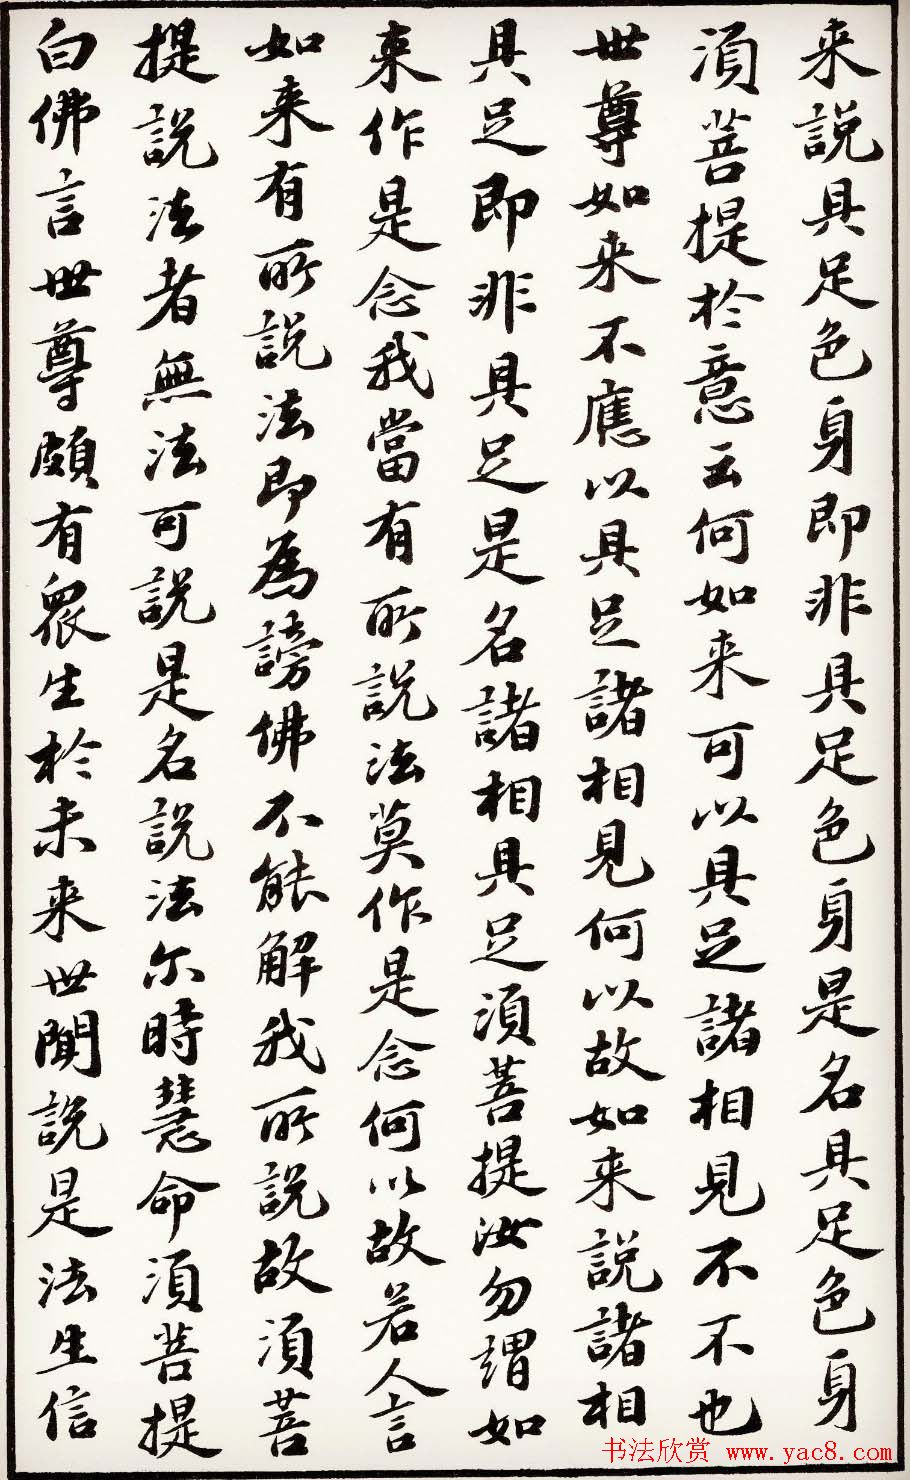 来說具足色身即非具足色身是名具足色身
須菩提於意云何如来可以具足諸相見不不也
世尊如来不應以具足諸相見何以故如来說諸相
具足即非具足是名諸相具足須菩提汝勿謂如
来作是念我當有所說法莫作是念何以故若人言
如来有所說法即為謗佛不能解我所說故須菩
提說法者無法可說是名說法尔時慧命須菩提
白佛言世尊頗有眾生於未来世聞說是法生信
书法欣赏 www.yac8.com